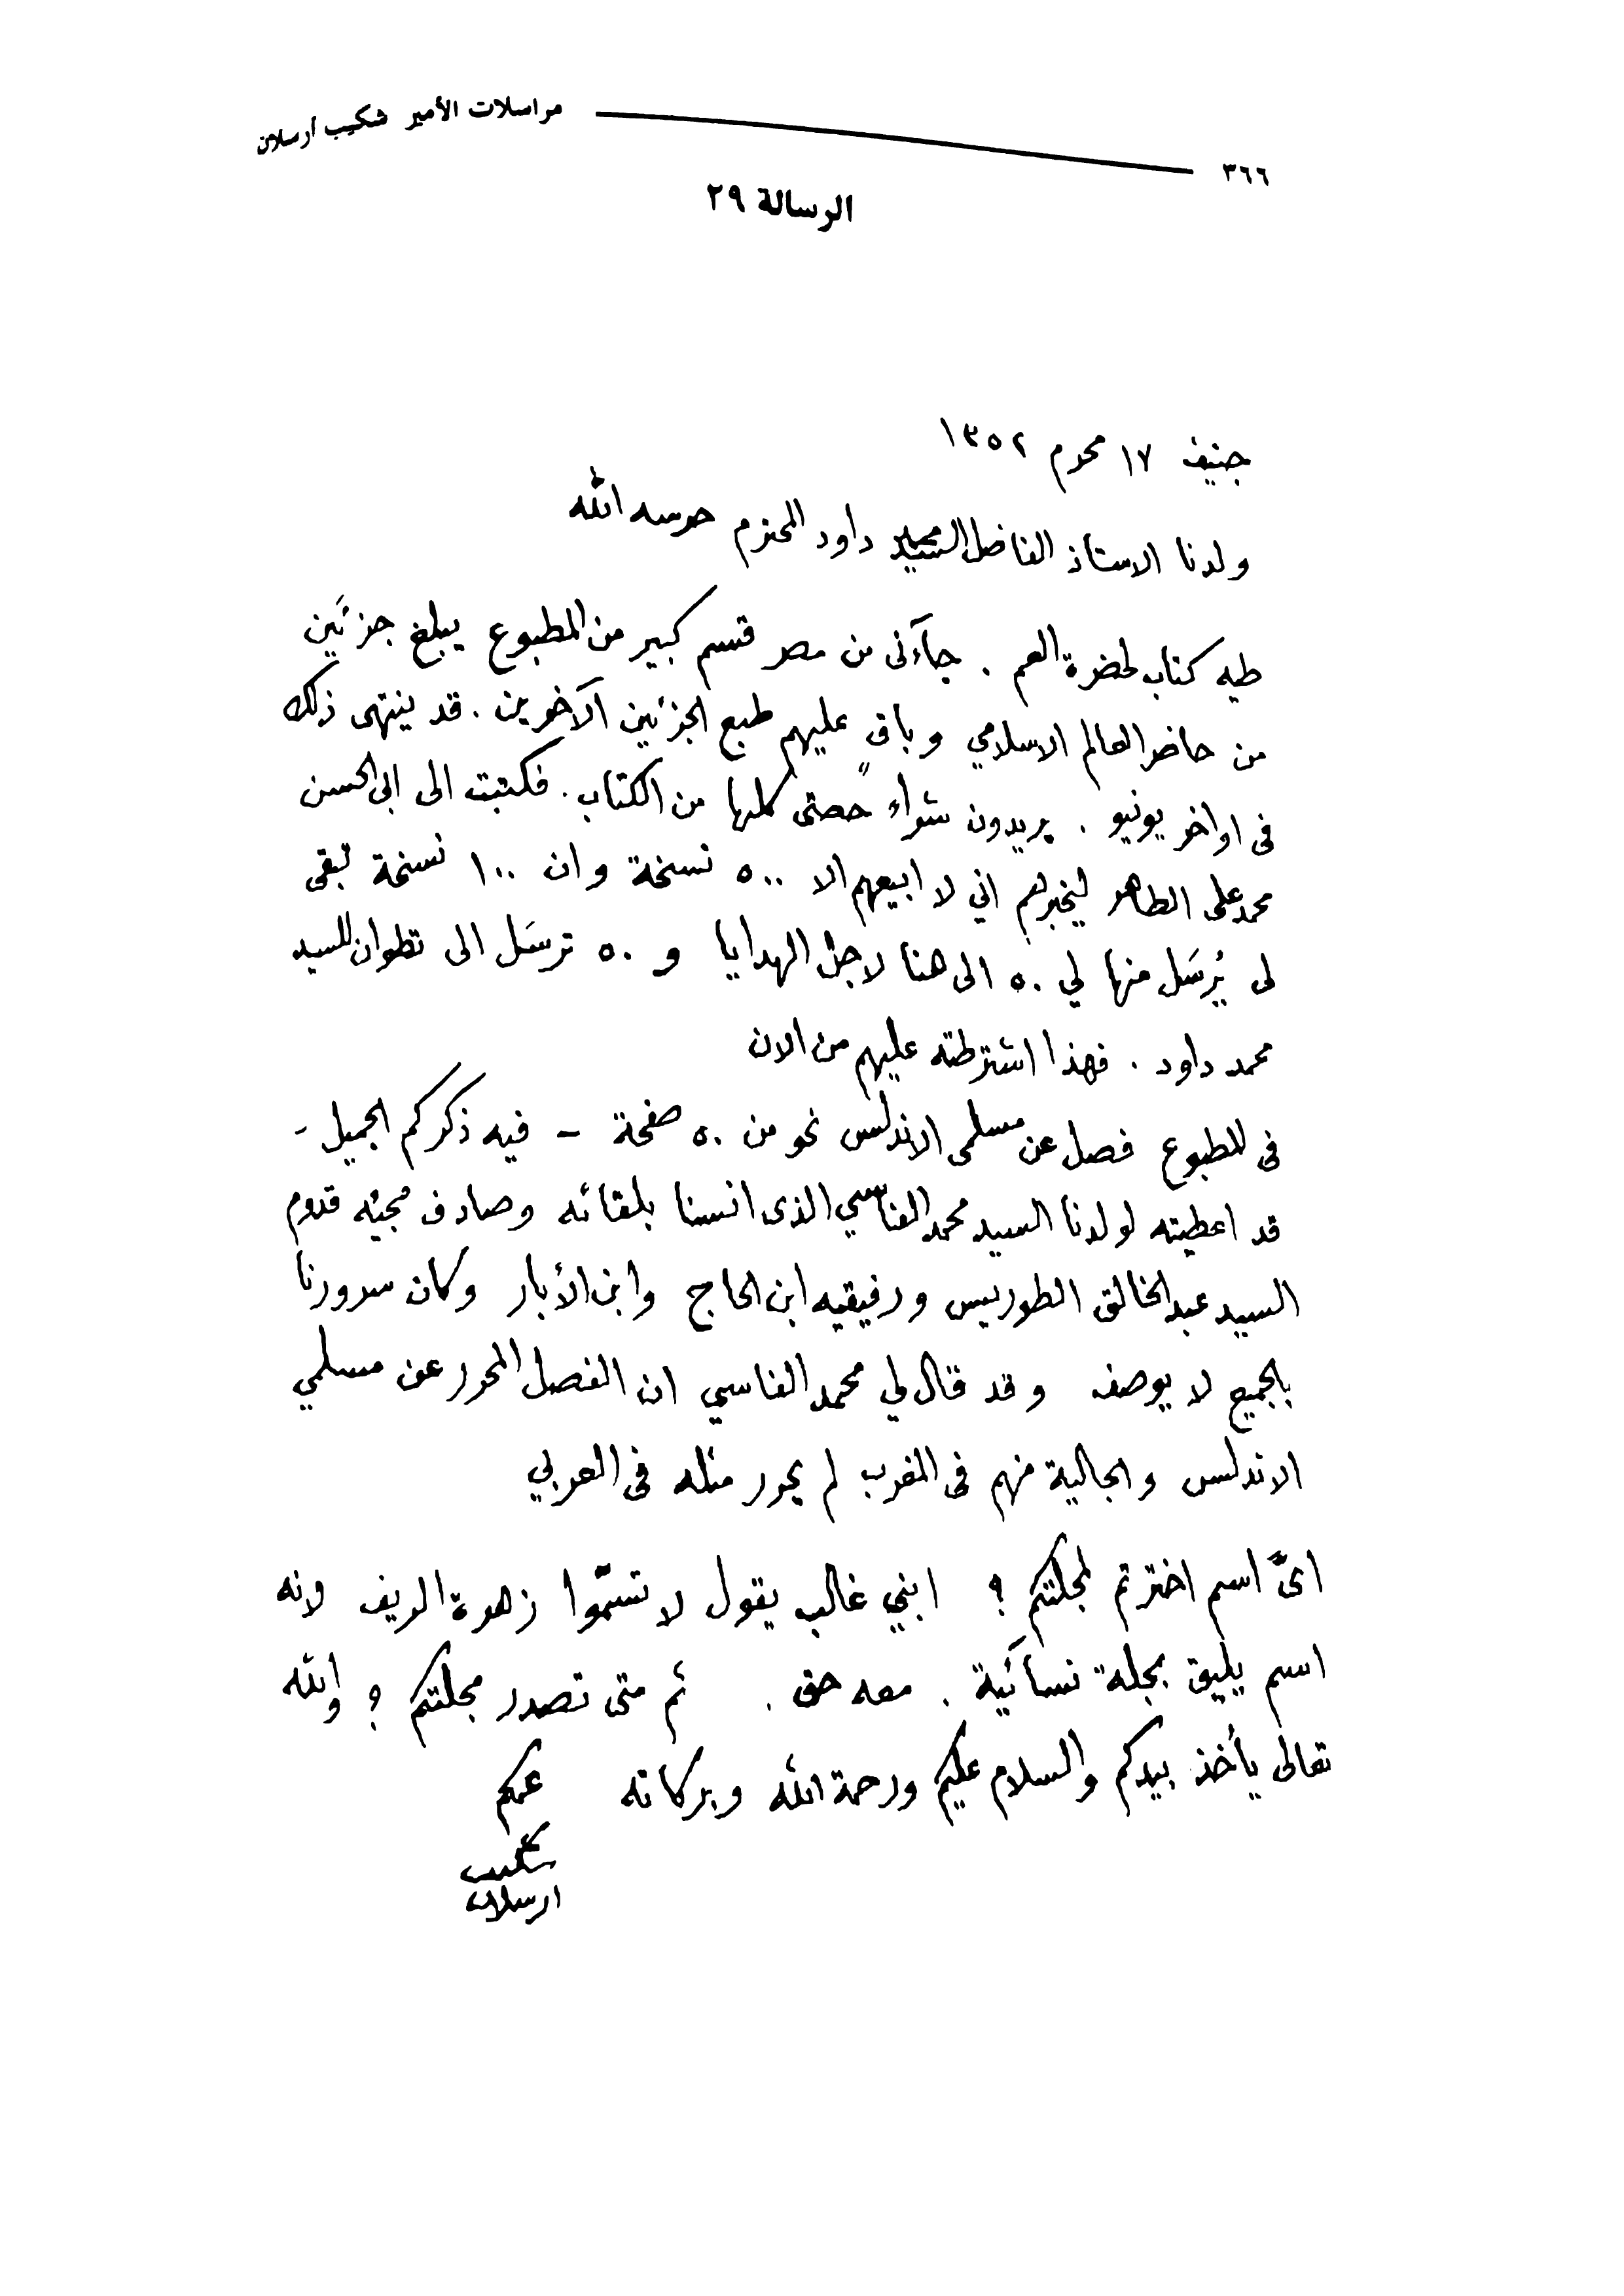 ٣٦٦ مراسلات الأمير شكيب أرسلان
الرسالة ٢٩
جنيف ١٧ محرم ١٣٥٢
ولدنا الاستاذ الفاضل السيد محمد داود المحترم حرسه الله
طيه كتاب لحضرة العم . جآءنى من مصر قسم كبير من المطبوع يبلغ جزئَين
من حاضر العالم الاسلامي وباقٍ عليهم طبع الجزئين الآخرين . قد ينتهى ذلك
فى اواخر يونيو . يريدون شراء حصتى كلها من الكتاب . فكتبت الى ابى الحسن
محمد على الطاهر ليخبرهم اني لا ابيعهم الا ٥٠٠ نسخة وان ١٠٠ نسخة تبقى
لى يُرسَل منها لي ٥٠ الى هنا لاجل الهدايا و ٥٠ ترسَل الى تطوان للسيد
محمد داود . فهذا اشترطته عليهم من الان
فى المطبوع فصل عن مسلمى الاندلس نحو من ٥٠ صفحة - فيه ذكركم الجميل -
قد اعطيته لولدنا السيد محمد الفاسي الذى انسنا بلقائه وصادف مجيئه قدوم
السيد عبد الخالق الطوريس ورفيقيه ابن الحاج وابن الأبار وكان سرورنا
بالجميع لا يوصف وقد قال لي محمد الفاسي ان الفصل المحرر عن مسلمي
الاندلس والجالية منهم فى المغرب لم يحرر مثله فى العربي
اىَّ اسم اخترتم لمجلتكم ؟ ابني غالب يقول لا تسمّوا زهرة الريف لانه
اسم يليق بمجلة نسآئية . معه حق . ثم متى تصدر مجلتكم ؟ والله
تعالى يأخذ بيدكم والسلام عليكم ورحمة الله وبركاته عمكم
شكيب
ارسلان